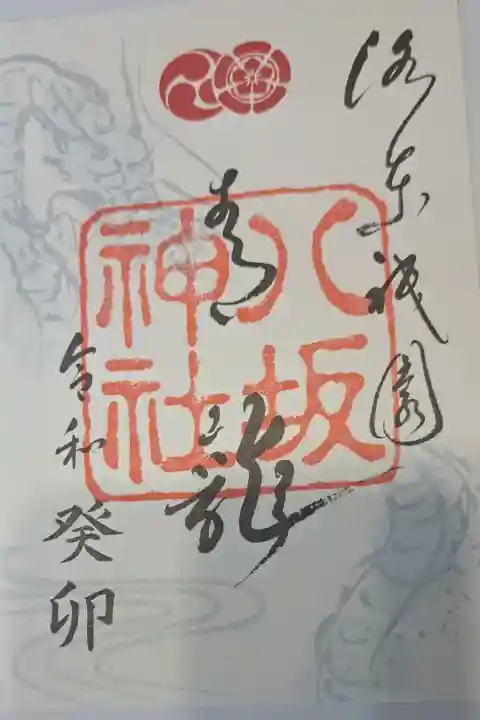 洛東祇園
八坂
神社
青龍
令和癸卯